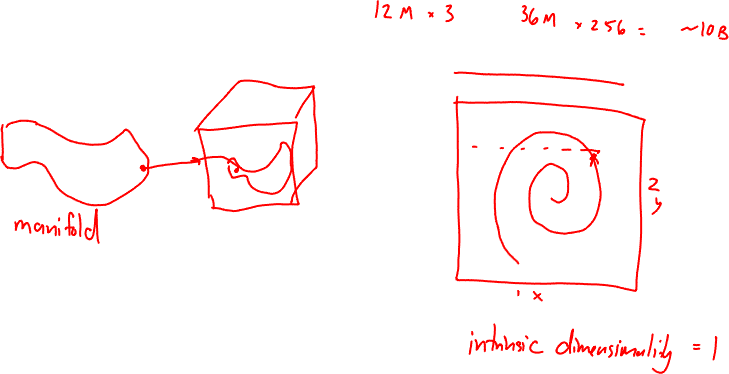 12 M × 3 36M × 256 = ~10B
manifold
2
y
1 x
intrinsic dimensionality = 1